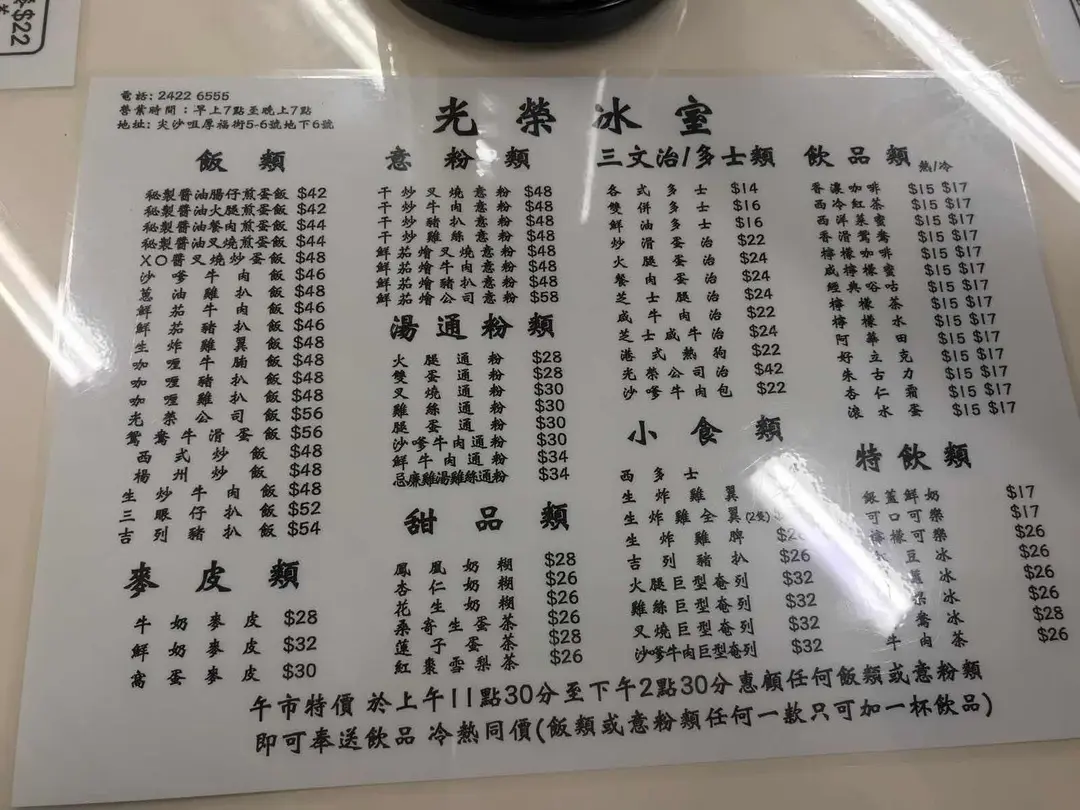 $22
電話: 2422 6555
營業時間：早上7點至晚上7點
地址: 尖沙咀厚福街5-6號地下6號
光榮冰室
飯類
秘製醬油腸仔煎蛋飯 $42
秘製醬油火腿煎蛋飯 $42
秘製醬油餐肉煎蛋飯 $44
秘製醬油叉燒煎蛋飯 $44
XO醬叉燒炒蛋飯 $48
沙嗲牛肉飯 $46
蔥油雞扒飯 $48
鮮茄牛肉飯 $46
鮮茄豬扒飯 $46
生炸雞翼飯 $48
咖喱牛腩飯 $48
咖喱豬扒飯 $48
咖喱雞扒飯 $48
光榮公司飯 $56
鴛鴦牛滑蛋飯 $56
西式炒飯 $48
楊州炒飯 $48
生炒牛肉飯 $48
三眼仔扒飯 $52
吉列豬扒飯 $54
麥皮類
牛奶麥皮 $28
鮮奶麥皮 $32
窩蛋麥皮 $30
意粉類
干炒叉燒意粉 $48
干炒牛肉意粉 $48
干炒豬扒意粉 $48
干炒雞絲意粉 $48
鮮茄燴叉燒意粉 $48
鮮茄燴牛肉意粉 $48
鮮茄燴豬扒意粉 $48
鮮茄燴公司意粉 $58
湯通粉類
火腿通粉 $28
雙蛋通粉 $28
叉燒通粉 $30
雞絲通粉 $30
腿蛋通粉 $30
沙嗲牛肉通粉 $30
鮮牛肉通粉 $34
忌廉雞湯雞絲通粉 $34
甜品類
鳳凰奶糊 $28
杏仁奶糊 $26
花生奶糊 $26
桑寄生蛋茶 $26
蓮子蛋茶 $28
紅棗雪梨茶 $26
三文治/多士類
各式多士 $14
雙併多士 $16
鮮油多士 $16
炒滑蛋治 $22
火腿蛋治 $24
餐肉蛋治 $24
芝士腿治 $24
咸牛肉治 $22
芝士咸牛治 $24
港式熱狗 $22
光榮公司治 $42
沙嗲牛肉包 $22
小食類
西多士
生炸雞翼
生炸雞全翼(2隻)
生炸雞脾
吉列豬扒 $26
火腿巨型奄列 $32
雞絲巨型奄列 $32
叉燒巨型奄列 $32
沙嗲牛肉巨型奄列 $32
飲品類 熱/冷
香濃咖啡 $15 $17
西冷紅茶 $15 $17
西洋菜蜜 $15 $17
香滑鴛鴦 $15 $17
檸檬咖啡 $15 $17
咸檸檬蜜 $15 $17
經典唂咕 $15 $17
檸檬茶 $15 $17
檸檬水 $15 $17
阿華田 $15 $17
好立克 $15 $17
朱古力 $15 $17
杏仁霜 $15 $17
滾水蛋 $15 $17
特飲類
銀蓋鮮奶 $17
可口可樂 $17
檸檬可樂 $26
豆冰 $26
冰 $26
冰 $26
冰 $28
牛肉茶 $26
午市特價 於上午11點30分至下午2點30分惠顧任何飯類或意粉類
即可奉送飲品 冷熱同價(飯類或意粉類任何一款只可加一杯飲品)